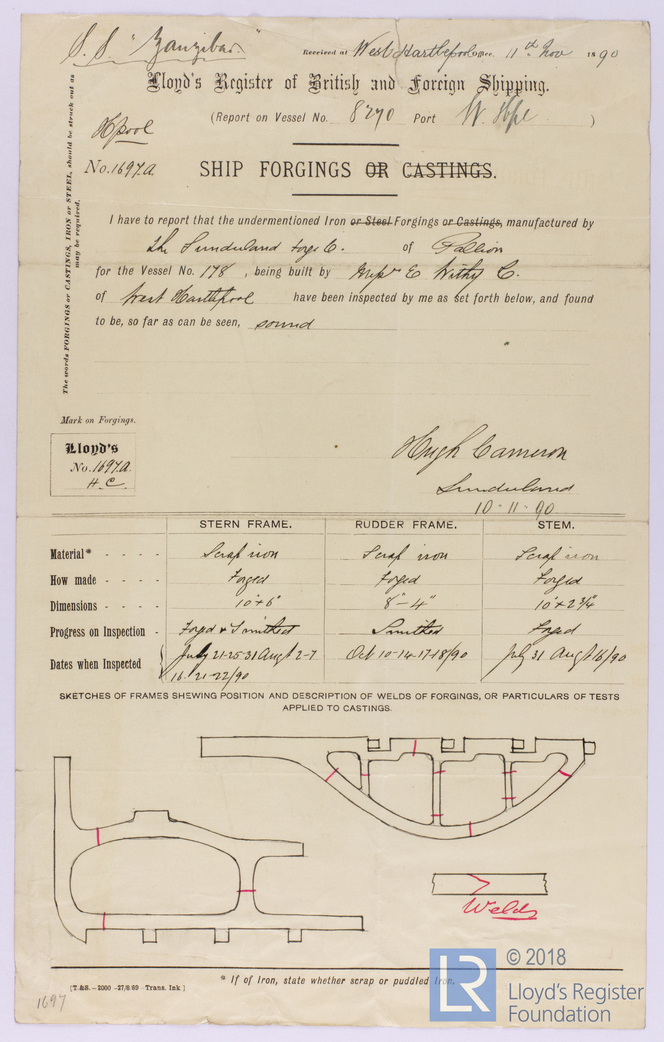 S.S. "Zanzibar"
Received at West Hartlepool Office, 11th Nov 1890
Lloyd's Register of British and Foreign Shipping.
(Report on Vessel No. 8270 Port W. Hpl )
Hpool
No. 1697.A
SHIP FORGINGS OR CASTINGS.
The words FORGINGS or CASTINGS, IRON or STEEL, should be struck out as
may be required.
I have to report that the undermentioned Iron or Steel Forgings or Castings, manufactured by
The Sunderland Forge Co. of Pallion
for the Vessel No. 178, being built by Messrs E Withy Co.
of West Hartlepool have been inspected by me as set forth below, and found
to be, so far as can be seen, sound
Mark on Forgings.
Lloyd's
No. 1697.A.
H.C.
Hugh Cameron
Sunderland
10-11-90
STERN FRAME. RUDDER FRAME. STEM.
Material* - - - - Scrap iron Scrap iron Scrap iron
How made - - - - Forged Forged Forged
Dimensions - - - - 10"x6" 8"-4" 10"x2¾"
Progress on Inspection - Forged & Smithed Smithed Forged
Dates when Inspected July 21-25-31 Aug 2-7 Oct 10-14-17-18/90 July 31 Aug 16/90
16-21-22/90
SKETCHES OF FRAMES SHEWING POSITION AND DESCRIPTION OF WELDS OF FORGINGS, OR PARTICULARS OF TESTS
APPLIED TO CASTINGS.
Welds
* If of Iron, state whether scrap or puddled Iron.
[T.&S.—2000—27/8/89—Trans. Ink.]
1697
LR
© 2018
Lloyd's Register
Foundation